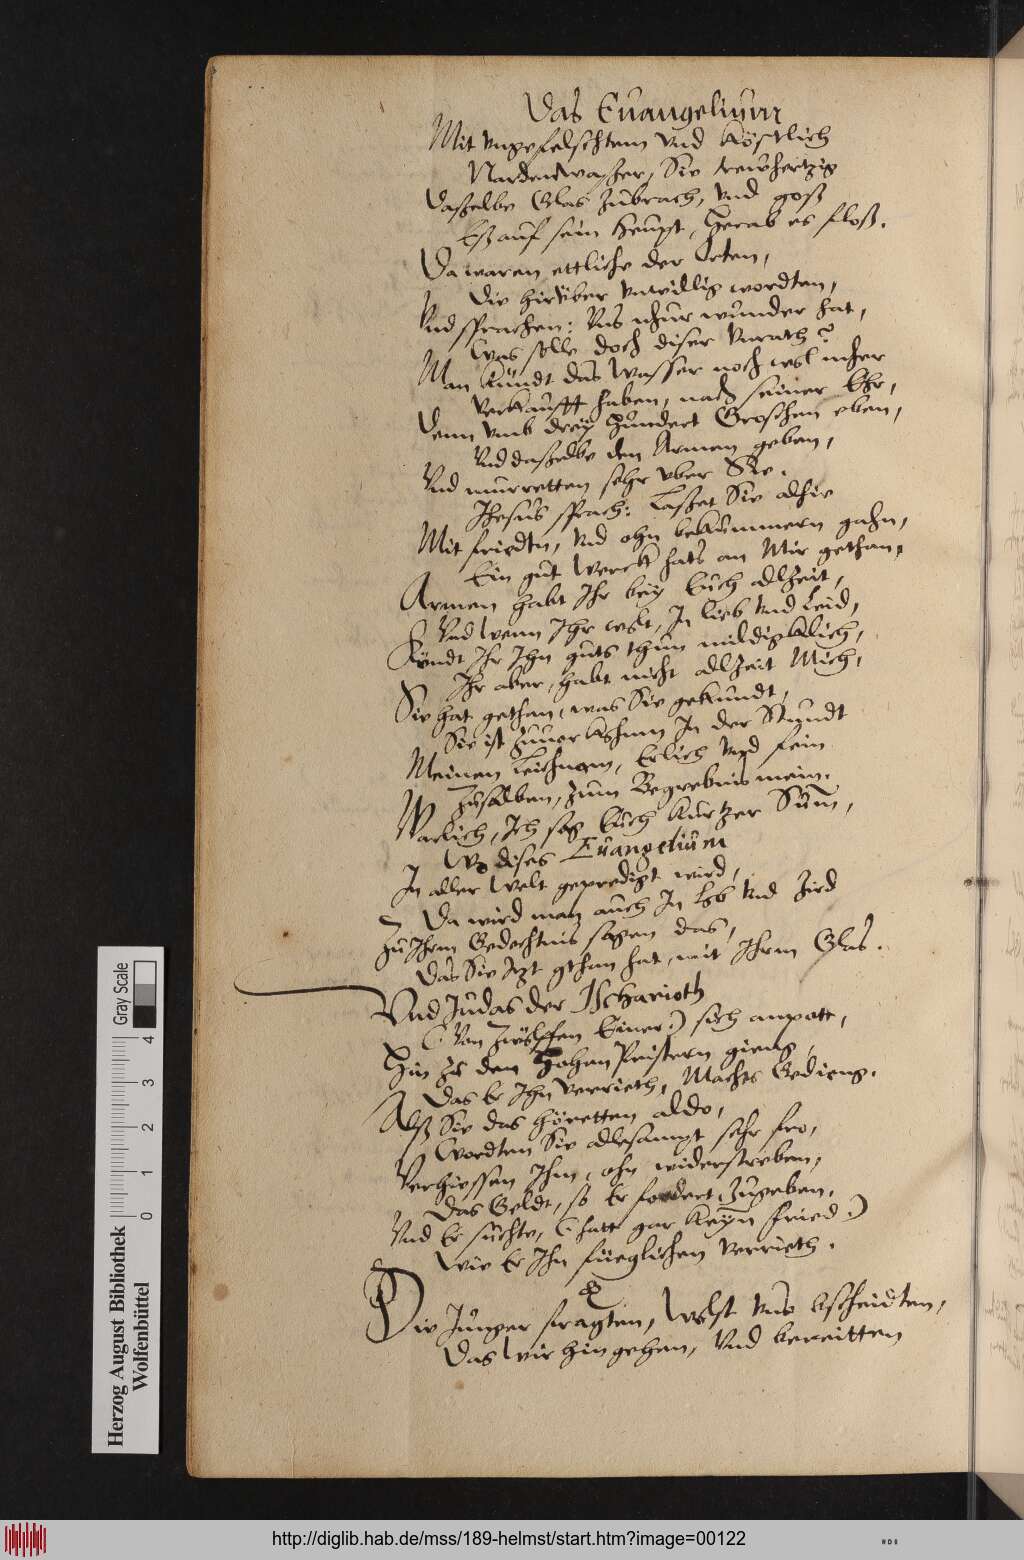 Das Euangelium
Mit vngefelschtem vnd köstlich
Nardenwaßer, Sie trewhertzig
Daßelbe Glas zubrach, vnd goß
Eß auf sein Heupt, herab es floß.
Da waren ettliche der Orten,
Die hirüber vnwillig wordten,
Vnd sprachen: Vns nhur wunder hat,
Was solle doch diser Vnrath?
Man kündt das Wasser noch wol mher
Verkaufft haben, nach seiner Ehr,
Denn vmb dreÿ hundert Groschen eben,
Vnd daßelbe den Armen geben,
Vnd murretten sehr vber Sie.
Jhesus sprach: Laßet Sie alhie
Mit friedtn, vnd ohn bekümmern gahn,
Ein gut Werck hats an Mir gethan,
Armen habt Ihr beÿ Euch allzeit,
Vnd Wenn Ihr wolt, In lieb vnd Leid,
Kündt Ihr Ihn guts thun mildigklich,
Ihr aber, habt nicht allzeit Mich,
Sie hat gethan, was Sie gekundt,
Sie ist zuuor kohmn In der Stundt
Meinen Leichnam, Erlich vnd fein
Zusalben, zum Begrebnis mein.
Warlich, Ich sag Euch kurtzer Sum̃,
Wo dises Euangelium
In aller Welt gepredigt wird,
Da wird man auch In Lob vnd Zird
Zu Ihrm Gedechtnis sagen das,
Das Sie Itzt gthan hat, mit Ihrm Glas.
Vnd Judas der Ischarioth
(: Von Zwölffen Einer:) sich anpott,
Hin zu den Hohen Pristern gieng,
Das Er Ihn verrieth, Machts Gedieng.
Alß Sie das höretten aldo,
Wordten Sie allesampt sehr fro,
Verhiessen Ihm, ohn widerstreben,
Das Geldt, so Er fordert, Zugeben,
Vnd Er suchte, (: hatt gar keÿn fried:)
Wie Er Ihn füeglichen verrieth.
Die Junger fragten, Wolst vns bscheidten,
Das Wir hingehen, Vnd bereitten
Gray Scale
0 1 2 3 4
Herzog August Bibliothek
Wolfenbüttel
http://diglib.hab.de/mss/189-helmst/start.htm?image=00122